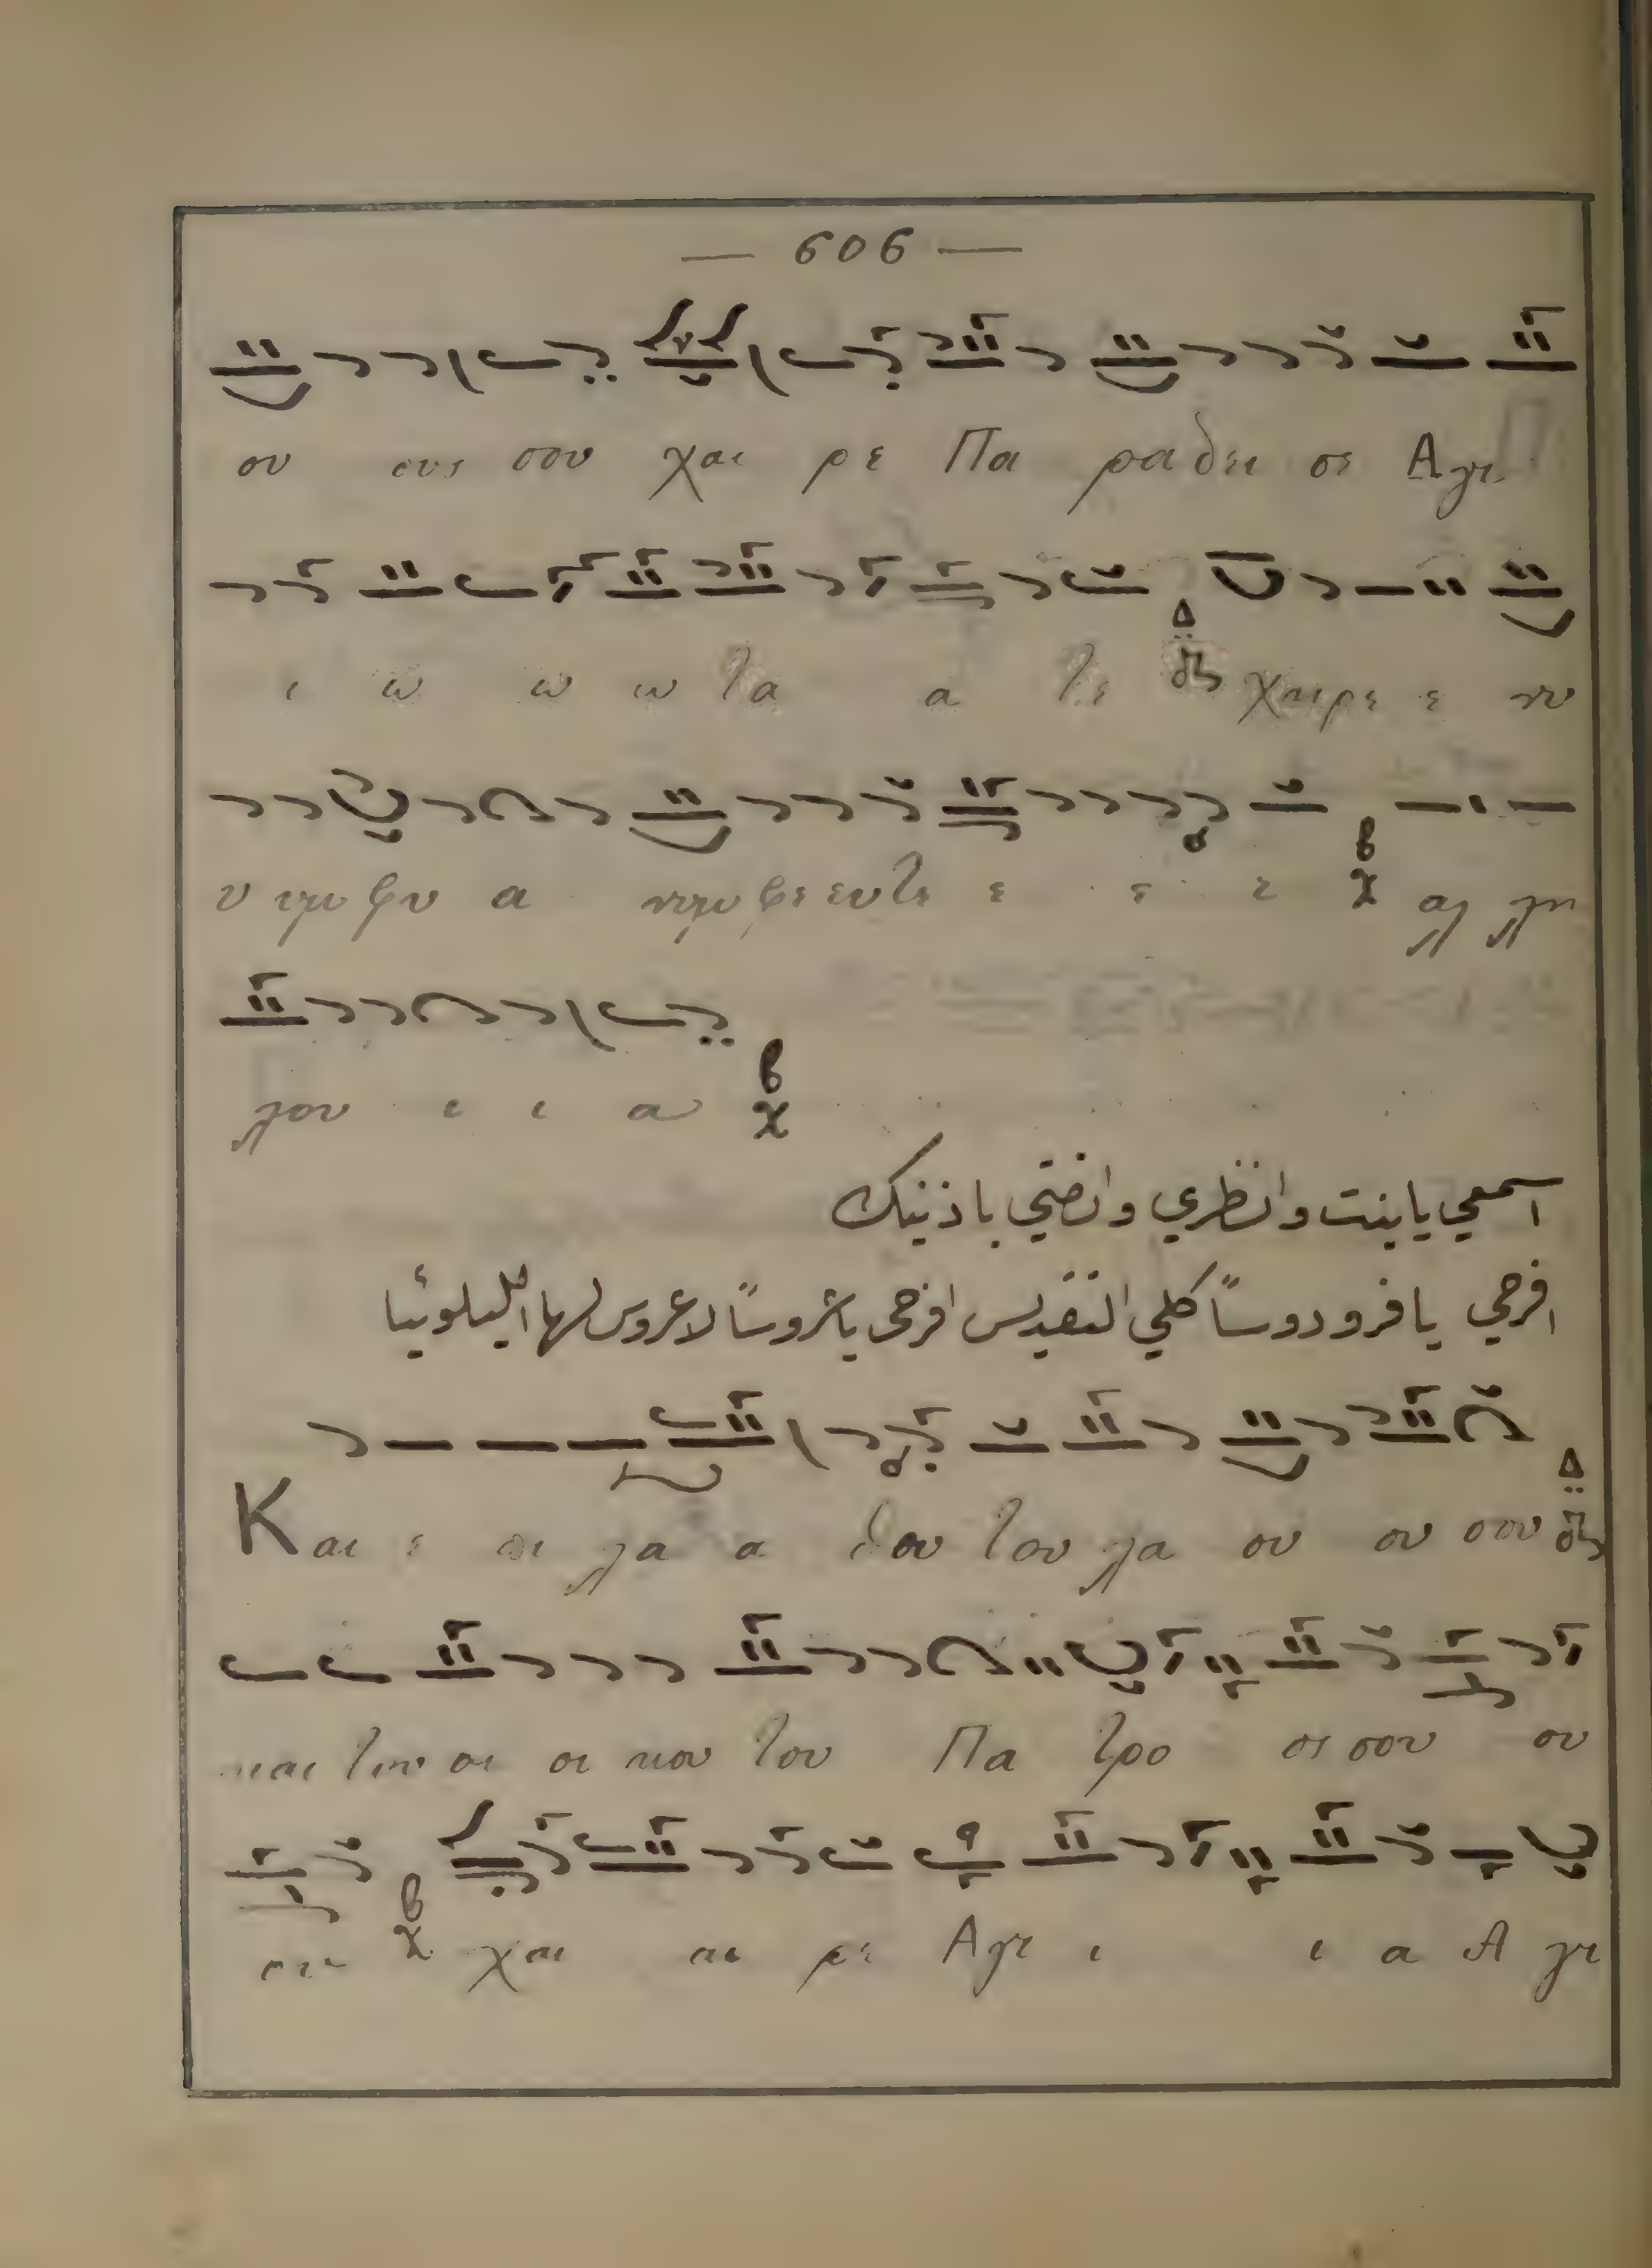 — 606 —
ου ους σου χαι ρε Πα ραδει σε Αγι
ι ω ω ω τα α τε χαιρε ε νυ
υ υμ φυ α νυμ φε ευτε ε ε ε αλ λη
λου ι ι α
اسمعي يا بنت وانظري وانصتي باذنيك
افرحي يا فرودوساً كلي التقديس افرحي يا عروساً لا عروس لها الليلوئيا
Και ε πι λα α θου του λα ου ου σου
και του οι οι κου του Πα τρο οσ σου ου
σου χαι αι ρε Αγι ι ι α Α γι